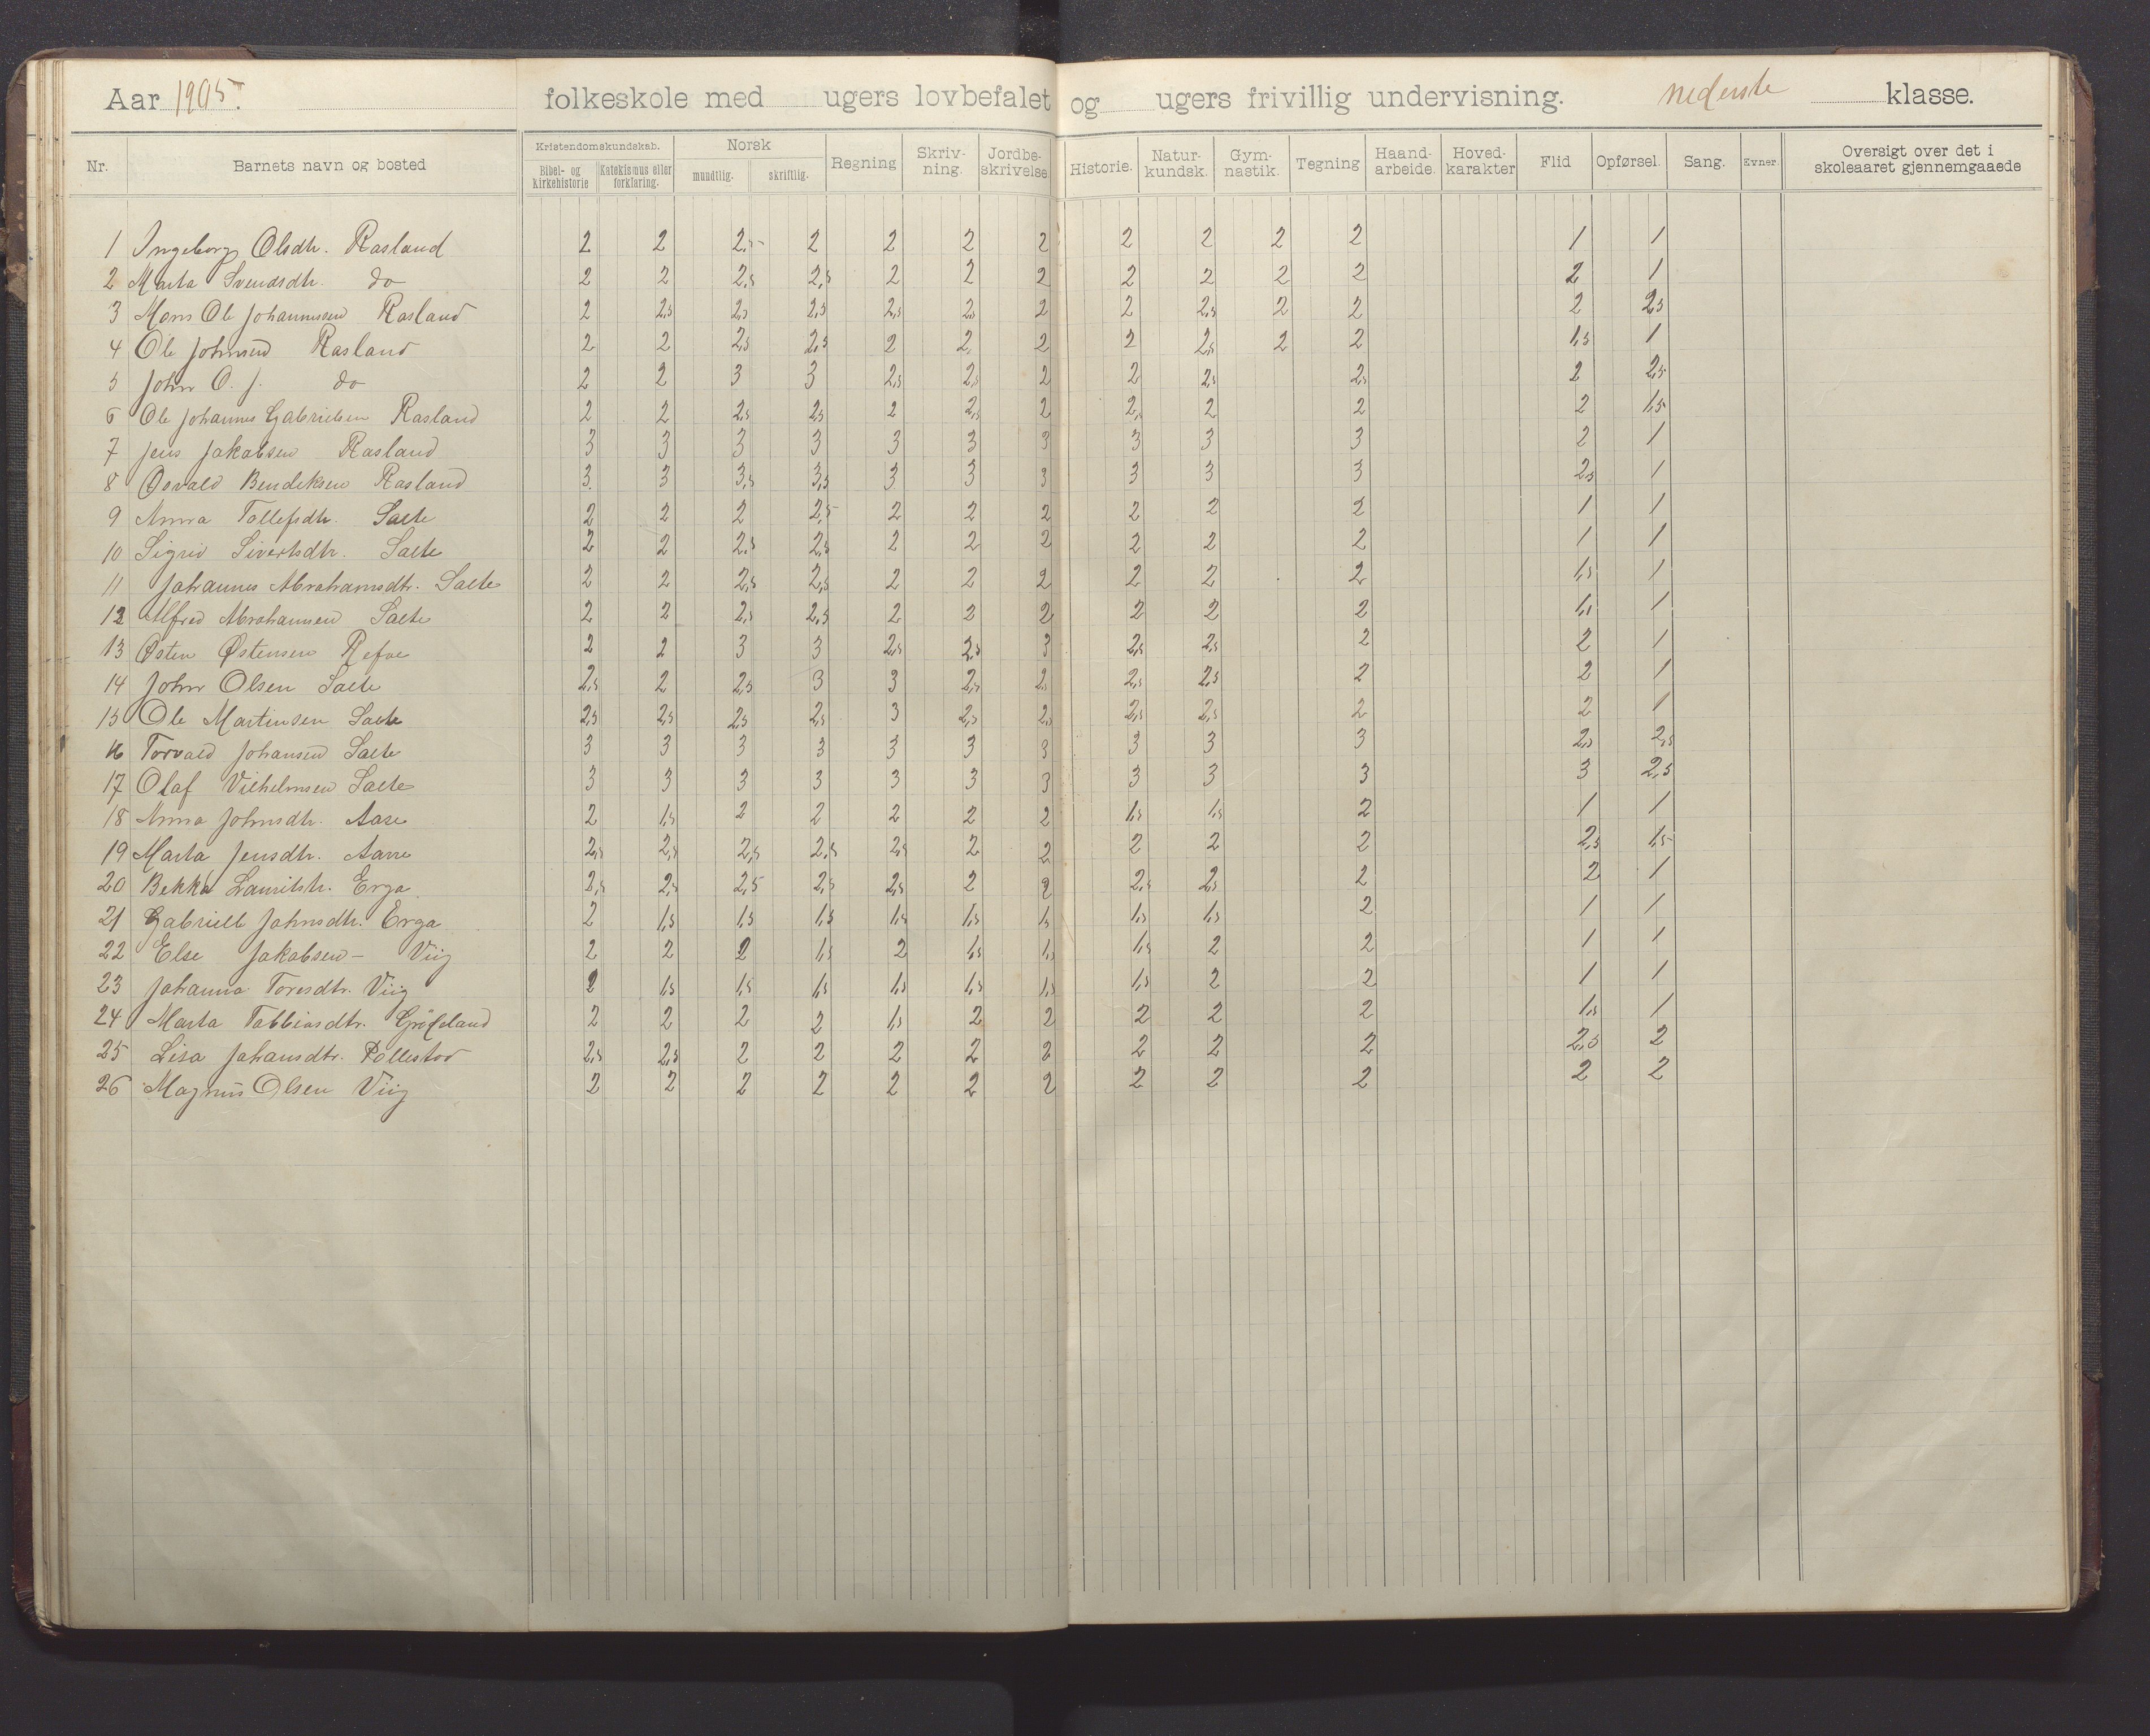 Aar 1905. folkeskole med ugers lovbefalet og ugers frivillig undervisning. nederste klasse.
Nr. Barnets navn og bosted Kristendomskundskab. Bibel- og kirkehistorie Katekismus eller forklaring. Norsk mundtlig. skriftlig. Regning Skriv-ning. Jordbe-skrivelse Historie. Natur-kundsk. Gym-nastik. Tegning Haand-arbeide. Hoved-karakter Flid Opførsel. Sang. Evner. Oversigt over det i skoleaaret gjennemgaaede
1 Ingeborg Olsdtr. Rasland 2 2 2,5 2 2 2 2 2 2 2 2 1 1
2 Marta Svendsdtr. do 2 2 2,5 2,5 2 2 2 2 2 2 2 2 1
3 Mons Ole Johannessen Rasland 2 2,5 2,5 2,5 2,5 2,5 2 2 2,5 2 2 2 2,5
4 Ole Johnsen Rasland 2 2 2,5 2,5 2 2 2 2 2,5 2 2 1,5 1
5 John O. J. do 2 2 3 3 2,5 2,5 2 2 2,5 2,5 2 2,5
6 Ole Johannes Gabrielsen Rasland 2 2 2,5 2,5 2 2,5 2 2,5 2 2 2 1,5
7 Jens Jakobsen Rasland 3 3 3 3 3 3 3 3 3 3 2 1
8 Osvald Bendiksen Rasland 3 3 3,5 3,5 3 3 3 3 3 3 2,5 1
9 Anna Tollefsdtr. Salte 2 2 2 2,5 2 2 2 2 2 2 1 1
10 Sigrid Sivertsdtr. Salte 2 2 2,5 2,5 2 2 2 2 2 2 1 1
11 Johannes Abrahamsdtr. Salte 2 2 2,5 2,5 2 2 2 2 2 2 1,5 1
12 Alfred Abrahamsen Salte 2 2 2,5 2,5 2 2 2 2 2 2 1,5 1
13 Østen Østensen Refve 2 2 3 3 2,5 2,5 3 2,5 2,5 2 2 1
14 John Olsen Salte 2,5 2 2,5 3 3 2,5 2,5 2,5 2,5 2 2 1
15 Ole Martinsen Salte 2,5 2,5 2,5 2,5 3 2,5 2,5 2,5 2,5 2 2 1
16 Torvald Johansen Salte 3 3 3 3 3 3 3 3 3 3 2,5 2,5
17 Olaf Vilhelmsen Salte 3 3 3 3 3 3 3 3 3 3 3 2,5
18 Anna Johnsdtr. Aase 2 1,5 2 2 2 2 2 1,5 1,5 2 1 1
19 Marta Jensdtr. Aarre 2,5 2,5 2,5 2,5 2,5 2 2 2 2 2 2,5 1,5
20 Bekka Lauritsdtr. Erga 2,5 2,5 2,5 2,5 2,5 2 2 2,5 2,5 2 2 1
21 Gabrielle Johnsdtr. Erga 2 1,5 1,5 1,5 1,5 1,5 1,5 1,5 1,5 2 1 1
22 Else Jakobsen - Viig 2 2 2 1,5 2 1,5 1,5 1,5 2 2 1 1
23 Johanna Toresdtr. Viig 2 1,5 1,5 1,5 1,5 1,5 1,5 1,5 2 2 1 1
24 Marta Tobbiasdtr. 2 2 2 2 1,5 2 2 2 2 2 1,5 1
25 Lisa Johansdtr. Pollestad 2,5 2,5 2 2 2 2 2 2 2 2 2,5 2
26 Magnus Olsen Viig 2 2 2 2 2 2 2 2 2 2 2 2